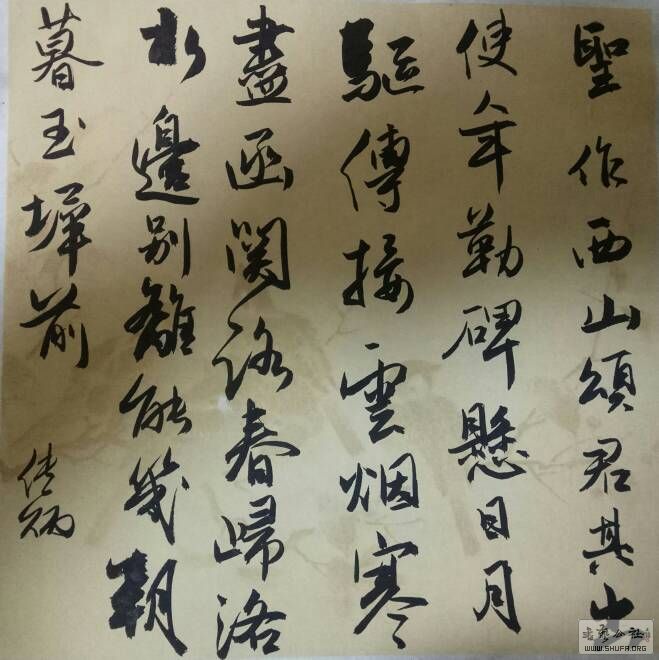 聖作西山頌君其出
使年勒碑懸日月
驅傳接雲烟寒
盡函關路春歸洛
水邊別離能幾朝
暮玉墀前
书艺公社
WWW.SHUFA.ORG